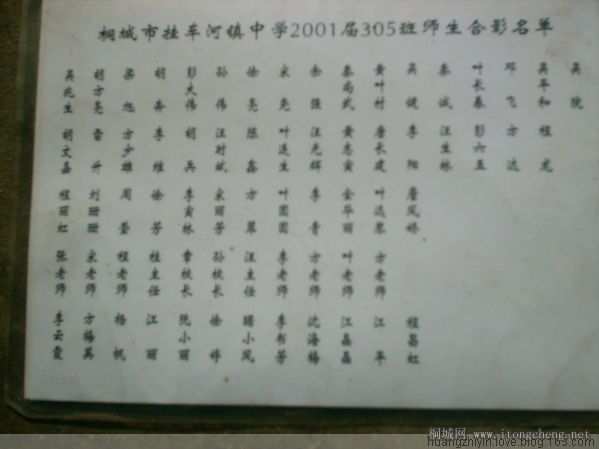 桐城市挂车河镇中学2001届305班师生合影名单
吴兆生 胡方亮 梁旭 胡奔 彭大伟 孙伟 徐亮 宋尧 余强 秦尚武 黄叶村 吴健 秦诚 叶长春 邓飞 吴平和 吴院
胡文嘉 雷升 方少雄 李维 胡兵 汪时斌 陈鑫 叶连生 汪光辉 黄志寅 唐长建 李阳 汪生林 彭六五 方达 程龙
程丽虹 刘珊珊 周莹 徐芳 李寅林 宋丽芳 方翠 叶圆圆 李青 金华丽 叶远琴 唐凤娇
张老师 宋老师 程老师 桂主任 章校长 孙校长 汪主任 李老师 方老师 叶老师 方老师
李云霞 方梅英 杨帆 江丽 阮小丽 徐婷 小凤 李书芳 沈海梅 江晶晶 江平 程昌虹
桐城网 www.itongcheng.net
huangzhiyin.love.blog.163.com